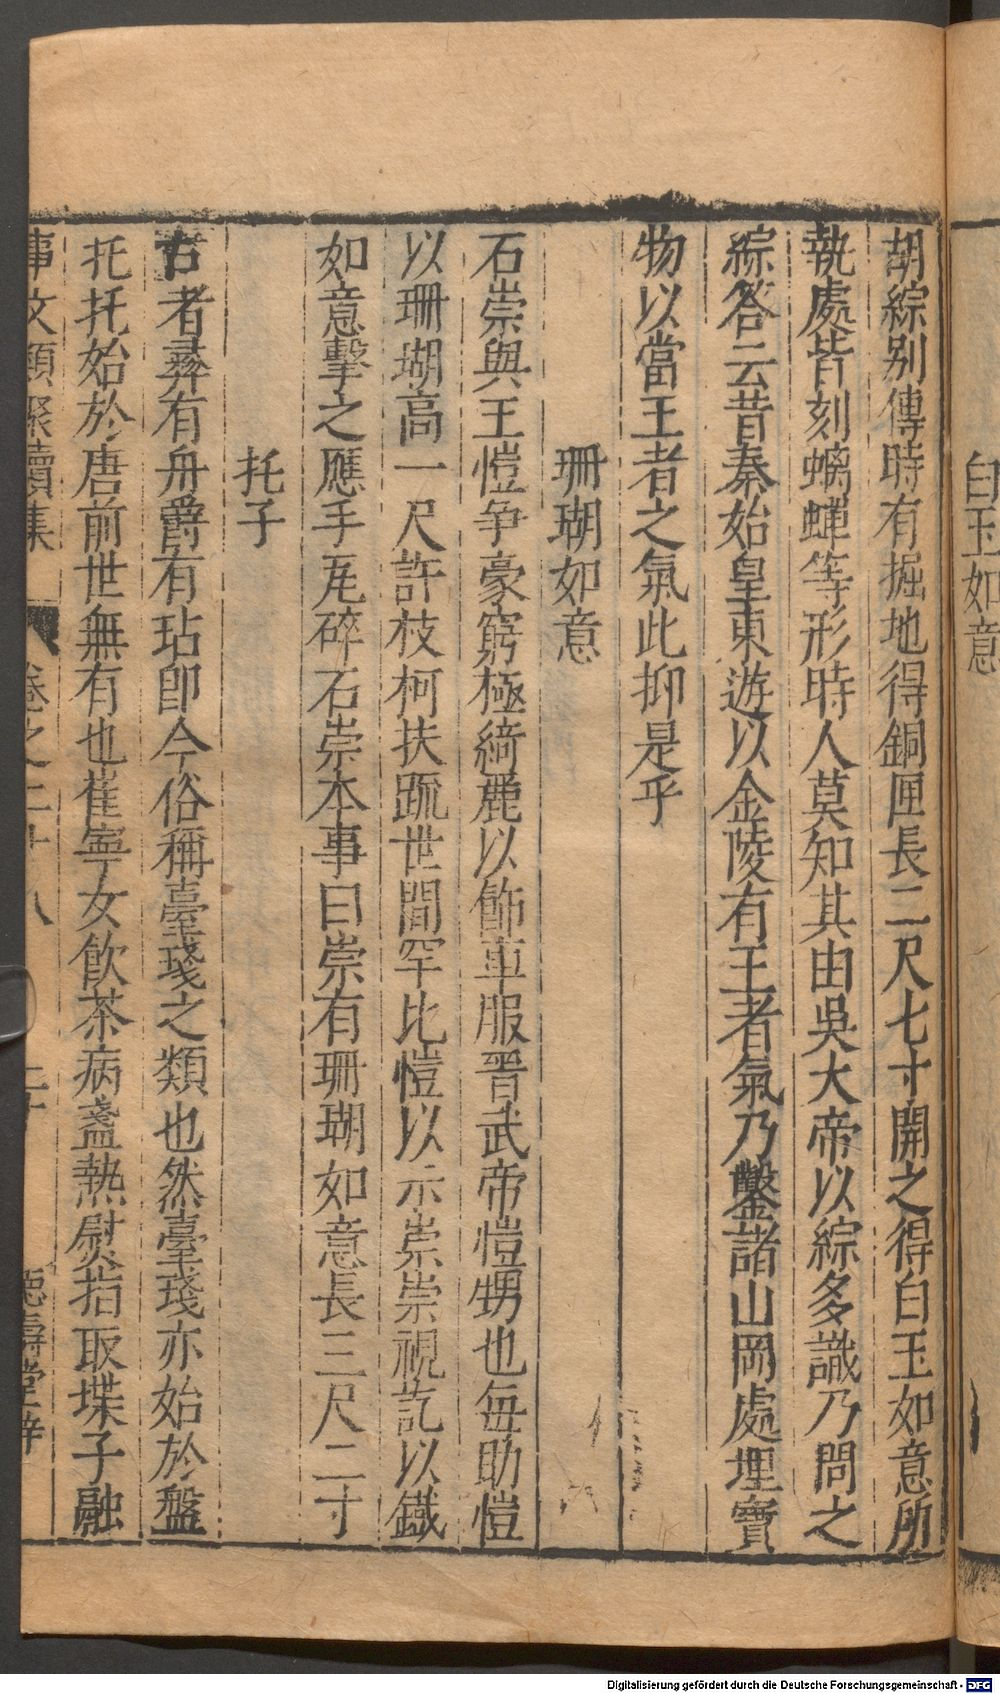 白玉如意
胡綜别傳時有掘地得銅匣長二尺七寸開之得白玉如意所
執處皆刻螭蟬等形時人莫知其由吳大帝以綜多識乃問之
綜答云昔秦始皇東遊以金陵有王者氣乃鑿諸山岡處埋寶
物以當王者之氣此抑是乎
珊瑚如意
石崇與王愷争豪窮極綺麗以飾車服晋武帝愷甥也每助愷
以珊瑚高一尺許枝柯扶疏世間罕比愷以示崇崇視訖以鐵
如意擊之應手瓦碎石崇本事曰崇有珊瑚如意長三尺二寸
托子
古者彝有舟爵有玷卽今俗稱臺琖之類也然臺琖亦始於盤
托托始於唐前世無有也崔寧女飲茶病盞熱熨指取堞子融
事文類聚續集 卷之二十八 二十 德壽堂梓
Digitalisierung gefördert durch die Deutsche Forschungsgemeinschaft - DFG